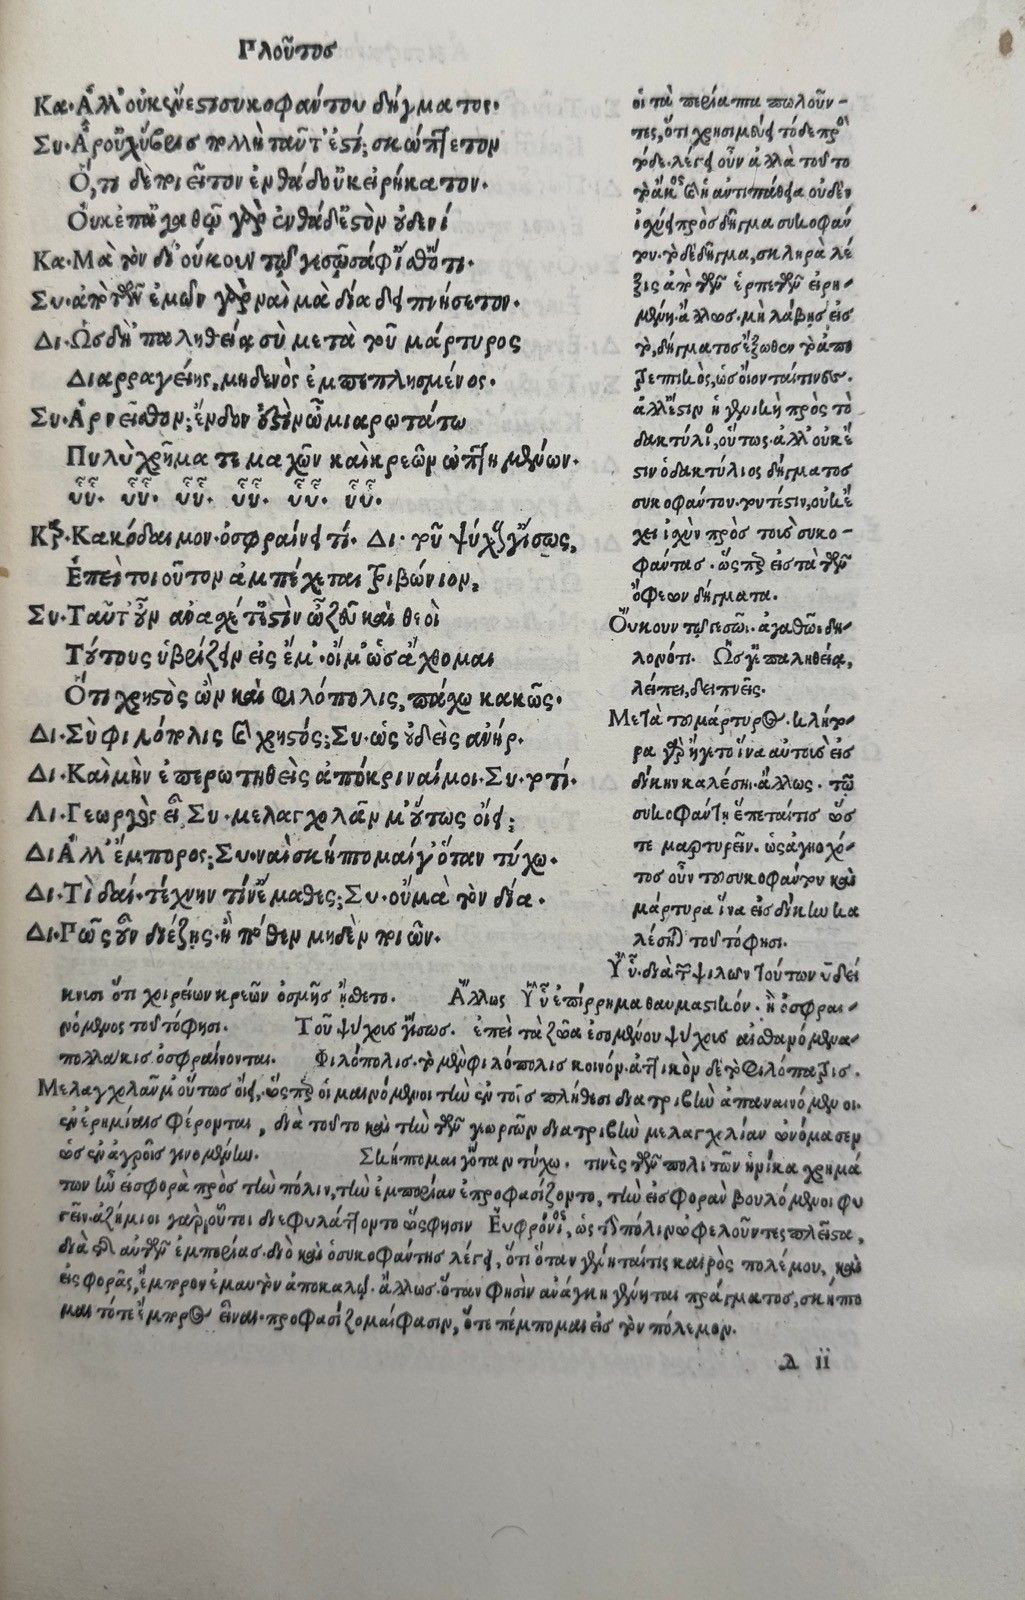 Πλοῦτος
Κα·Ἀλλ' οὐκ ἔνεστι συκοφάντου δήγματος.
Συ·Ἆρ' οὐχ ὕβρις πολλὴ ταῦτ' ἐστί; σκώπτετον
Ὅ,τι δὲ ποιεῖτον ἐνθάδ' οὐκ εἰρήκατον.
Οὐκ ἐπ' ἀγαθῷ γὰρ ἐνθάδ' ἐστὸν οὐδενί
Κα·Μὰ τὸν δί' οὔκουν τῷ γε σῷ σάφ' ἴσθ' ὅτι.
Συ·ἀπὸ τῶν ἐμῶν γὰρ ναὶ μὰ δία δειπνήσετον.
Δι·Ὡς δὴ 'παληθείᾳ σὺ μετὰ τοῦ μάρτυρος
Διαρραγείης, μηδενὸς ἐμπεπλησμένος.
Συ·Ἀρνεῖσθον; ἔνδον ἐστὶν ὦ μιαρωτάτω
Πολὺ χρῆμα τεμαχῶν καὶ κρεῶν ὠπτημένων.
ὗὗ. ὗὗ. ὗὗ. ὗὗ. ὗὗ. ὗὗ.
Κρ·Κακόδαιμον·ὀσφραίνει τί· Δι·τοῦ ψύχους γ' ἴσως,
Ἐπεὶ τοιοῦτον ἀμπέχεται τριβώνιον,
Συ·Ταῦτ' οὖν ἀνασχέτ' ἐστὶν ὦ ζεῦ καὶ θεοὶ
Τούτους ὑβρίζειν εἰς ἔμ'·οἴμ' ὡς ἄχθομαι
Ὅτι χρηστὸς ὢν καὶ φιλόπολις, πάσχω κακῶς.
Δι·Σὺ φιλόπολις καὶ χρηστός; Συ·ὡς οὐδεὶς ἀνήρ.
Δι·Καὶ μὴν ἐπερωτηθεὶς ἀπόκριναί μοι·Συ·τοτί.
Δι·Γεωργὸς εἶ Συ·μελαγχολᾶν μ' οὕτως οἴει;
Δι Ἀλλ' ἔμπορος; Συ·ναὶ σκήπτομαί γ' ὅταν τύχω.
Δι·Τὶ δαί·τέχνην τίν' ἔμαθες; Συ·οὐ μὰ τὸν δία.
Δι·Πῶς οὖν διέζης·ἢ πόθεν μηδὲν ποιῶν.
οἱ τὰ περίαπτα πωλοῦν-
τες, ὅτι χρησιμεύει τόδε πρὸς
τόδε·λέγει οὖν ἀλλὰ τοῦτο
τὸ ἄκος καὶ ἡ ἀντιπάθεια οὐδὲν
ἰσχύει πρὸς δῆγμα συκοφάν
του·τὸ δὲ δῆγμα, σκληρὰ λέ
ξις ἀπὸ τῶν ἑρπετῶν εἰρη-
μένη·ἄλλως·μὴ λάβῃς εἰς
τὸ, δήγματος ἔξωθεν τὸ ἀπο
τρεπτικὸς, ὡς οἴονταί τινες.
ἀλλ' ἔστιν ἡ γενικὴ πρὸς τὸ
δακτύλιος, οὕτως·ἀλλ' οὐκ ἔ
στιν ὁ δακτύλιος δήγματος
συκοφάντου·τουτέστιν, οὐκ ἔ
χει ἰσχὺν πρὸς τοὺς συκο-
φάντας·ὥσπερ εἰς τὰ τῶν
ὄφεων δήγματα.
Οὔκουν τῷ γε σῷ·ἀγαθῷ δη-
λονότι. Ὡς γ' ἐπαληθείᾳ,
λείπει, δειπνεῖς.
Μετὰ του μάρτυρος·κλήτο-
ρα γὰρ ἤγετο ἵνα αὐτοὺς εἰς
δίκην καλέσῃ·ἄλλως·τῷ
συκοφάντῃ ἕπεταί τις ὥσ
τε μαρτυρεῖν.ὡς ἀγνοχό-
τος οὖν του συκοφάντου καὶ
μάρτυρα ἵνα εἰς δίκην κα
λέσῃ τοῦτό φησι.
Ὗὗ·διὰ τῶν ψιλῶν τούτων ἐνδεί
κνυσι ὅτι χοιρείων κρεῶν ὀσμῆς ᾔσθετο. Ἄλλως Ὗὗ ἐπίρρημα θαυμαστικόν·ἢ ὀσφραι-
νόμενος τοῦτό φησι. Τοῦ ψύχους γ' ἴσως. ἐπεὶ τὰ ζῷα ἐσομένου ψύχους αἰσθανόμενα-
πολλάκις ὀσφραίνονται. Φιλόπολις·τὸ μὲν φιλόπολις κοινόν·ἀττικὸν δὲ τὸ φιλόπατρις.
Μελαγχολᾶν μ' οὕτως οἴει, ὥσπερ οἱ μαινόμενοι τὴν ἐν τοῖς πλήθεσι διατριβὴν ἀπαναινόμενοι
ἐν ἐρημίαις φέρονται, διὰ τοῦτο καὶ τὴν τῶν γεωργῶν διατριβὴν μελαγχολίαν ὠνόμασεν
ὡς ἐν ἀγροῖς γινομένην. Σκήπτομαι γ' ὅταν τύχω. τινὲς τῶν πολιτῶν ἡνίκα χρημά
των ἦν εἰσφορὰ πρὸς τὴν πόλιν, τὴν ἐμπορίαν ἐπροφασίζοντο, τὴν εἰσφορὰν βουλόμενοι φυ
γεῖν·ἀζήμιοι γὰρ οὗτοι διεφυλάττοντο ὥς φησιν Εὐφρόνιος, ὡς τὴν πόλιν ὠφελοῦντες πλεῖστα,
διὰ τὴν αὐτῶν ἐμπορίας·διὸ καὶ ὁ συκοφάντης λέγει, ὅτι ὅταν γένηταί τις καιρὸς πολέμου, καὶ
εἰσφορᾶς, ἔμπορον ἐμαυτὸν ἀποκαλῶ·ἄλλως·ὅταν φησὶν ἀνάγκη γένηται πράγματος, σκήπτο
μαι τότε ἔμπορος εἶναι·προφασίζομαί φασιν, ὅτε πέμπομαι εἰς τὸν πόλεμον.
Δ ii